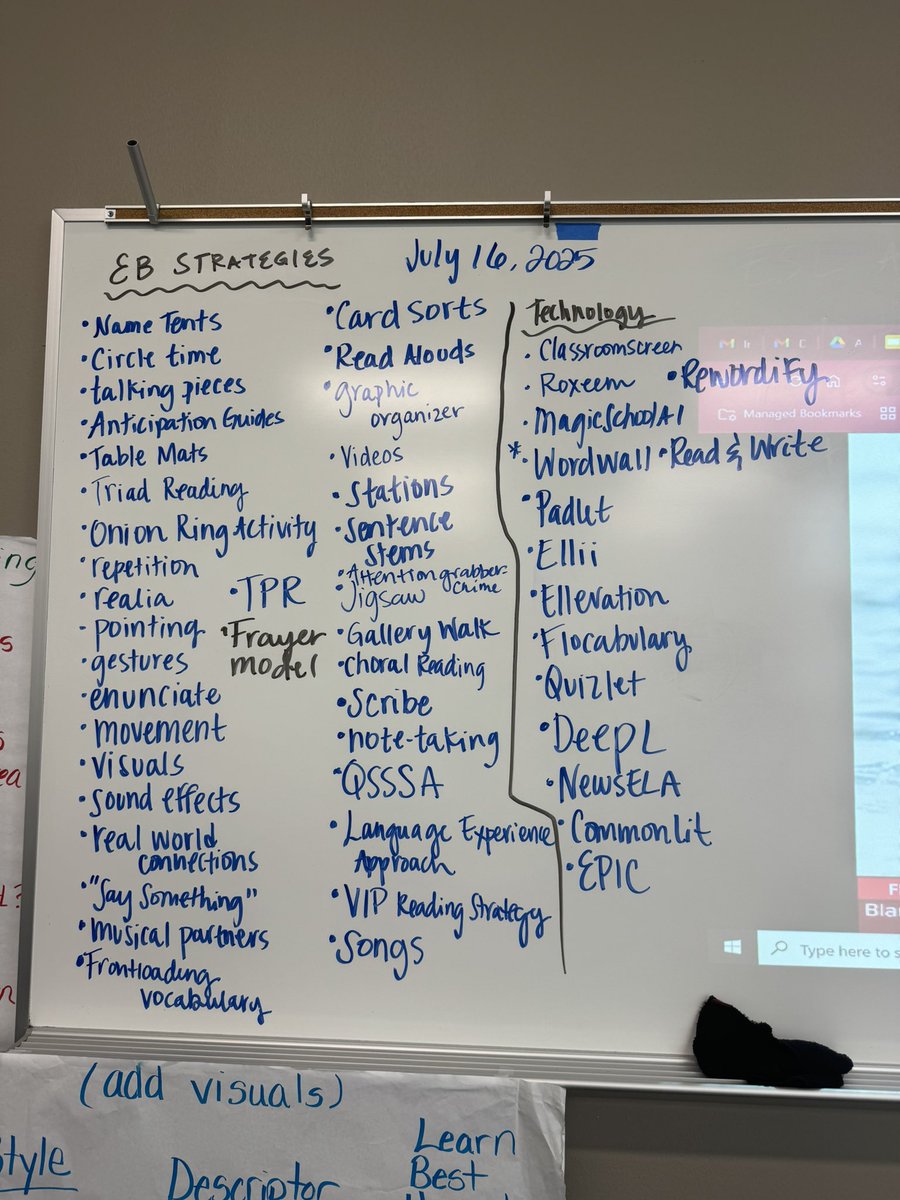 EB STRATEGIES
July 16, 2025
• Name Tents
• Circle time
• talking pieces
• Anticipation Guides
• Table Mats
• Triad Reading
• Onion Ring Activity
• repetition
• realia
- pointing
• gestures
• enunciate
• movement
• visuals
• sound effects
• real world
connections
• "Say Something"
• musical partners
• Frontloading
vocabulary
• TPR
• Frayer
model
• Card Sorts
• Read Alouds
• graphic
organizer
• Videos
• Stations
• Sentence
Stems
• Attention grabber-
chime
• Jigsaw
• Gallery Walk
• Choral Reading
• Scribe
• note-taking
• QSSSA
• Language Experience
Approach
• VIP Reading Strategy
• Songs
Technology
• Classroomscreen
• Roxeem • Rewordify
• MagicSchoolAI
* • Wordwall • Read & Write
• Padlet
• Ellii
• Ellevation
• Flocabulary
• Quizlet
• DeepL
• NewsELA
• CommonLit
• EPIC
Managed Bookmarks
Type here to s
(add visuals)
Descriptor
Learn
Best